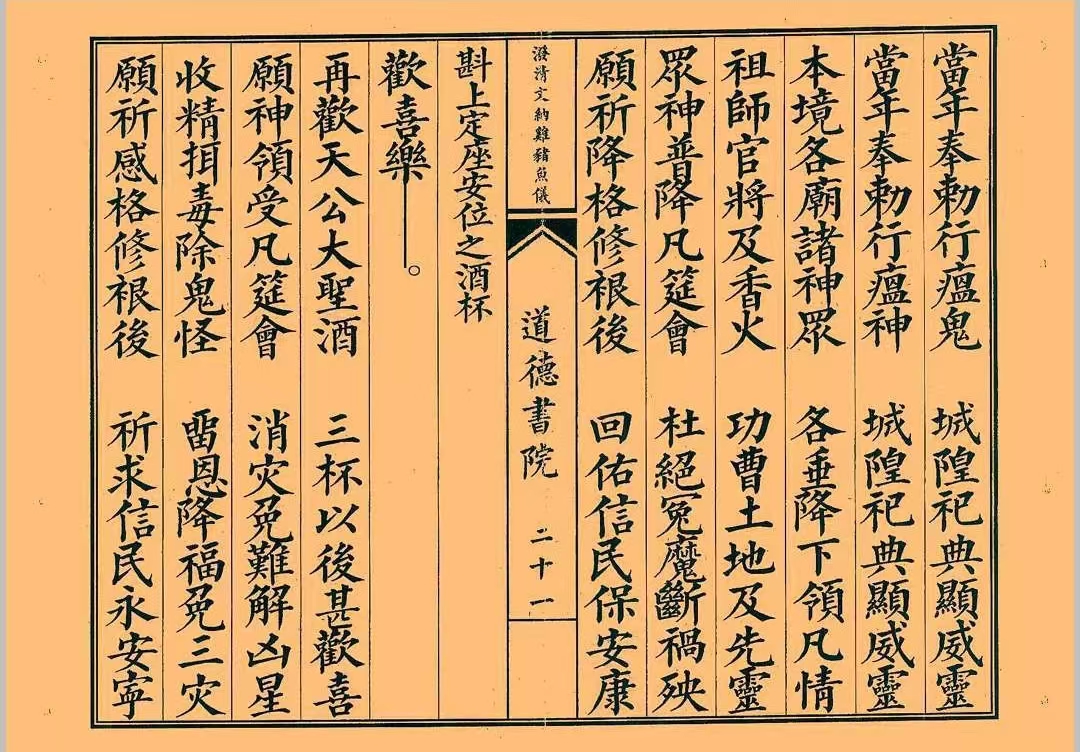 當年奉勅行瘟鬼 城隍祀典顯威靈
當年奉勅行瘟神 城隍祀典顯威靈
本境各廟諸神眾 各垂降下領凡情
祖師官將及香火 功曹土地及先靈
眾神普降凡筵會 杜絕冤魔斷禍殃
願祈降格修裉後 回佑信民保安康
潑清文納雞豬魚儀
道德書院
二十一
斟上定座安位之酒杯
歡喜樂——。
再歡天公大聖酒 三杯以後甚歡喜
願神領受凡筵會 消灾免難解凶星
收精挕毒除鬼怪 畱恩降福免三灾
願祈感格修裉後 祈求信民永安寧